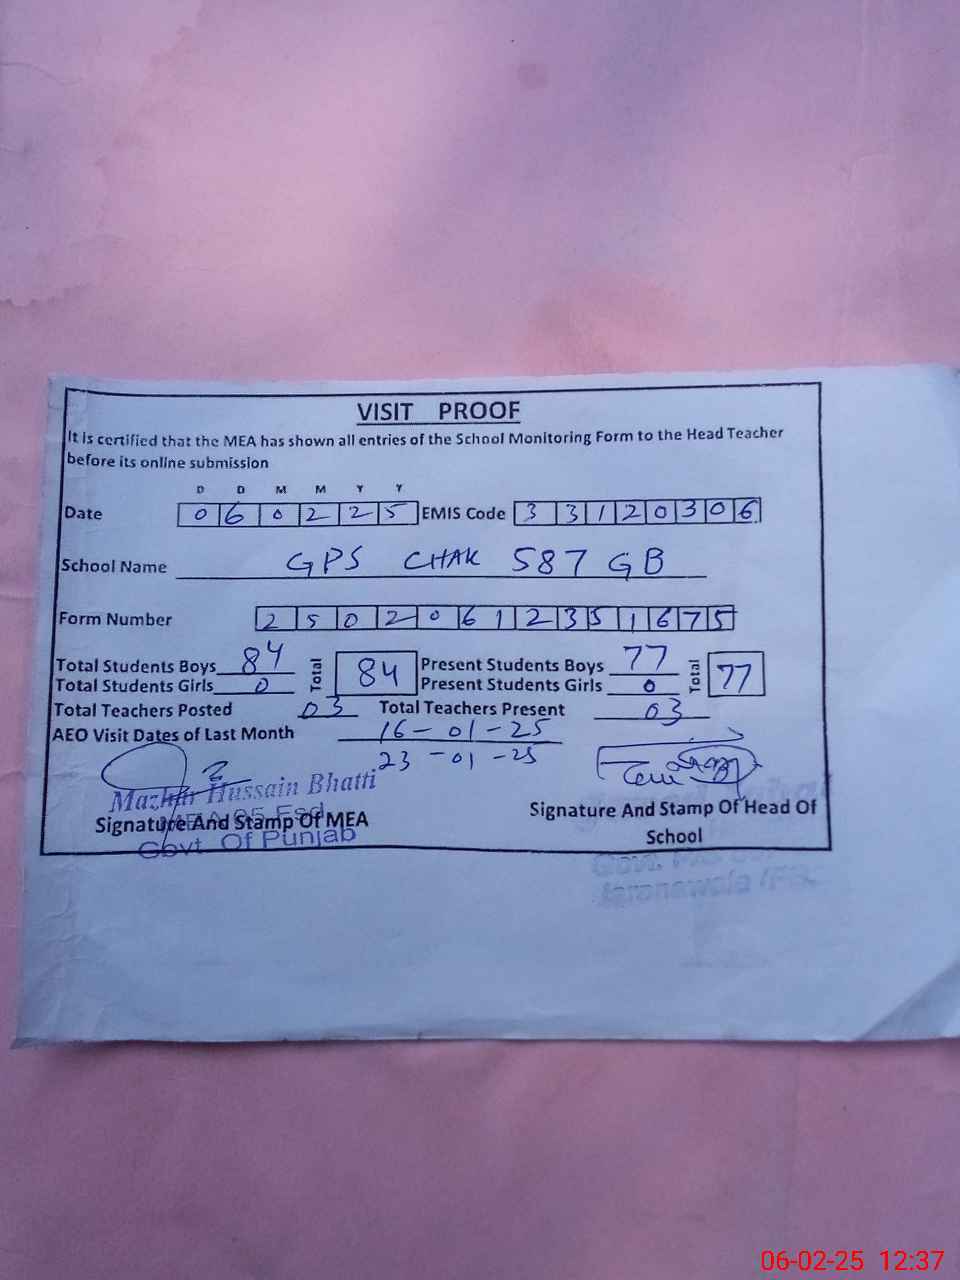 VISIT PROOF
It is certified that the MEA has shown all entries of the School Monitoring Form to the Head Teacher
before its online submission
D D M M Y Y
Date 0 6 0 2 2 5 EMIS Code 3 3 1 2 0 3 0 6
School Name GPS CHAK 587 GB
Form Number 2 5 0 2 0 6 1 2 3 5 1 6 7 5
Total Students Boys 84 Total 84 Present Students Boys 77 Total 77
Total Students Girls 0 Present Students Girls 0
Total Teachers Posted 03 Total Teachers Present 03
AEO Visit Dates of Last Month 16-01-25
23-01-25
Mazhar Hussain Bhatti
MEA
Signature And Stamp Of MEA
Govt. Of Punjab
Signature And Stamp Of Head Of
School
Govt.
Jaranwala
06-02-25 12:37